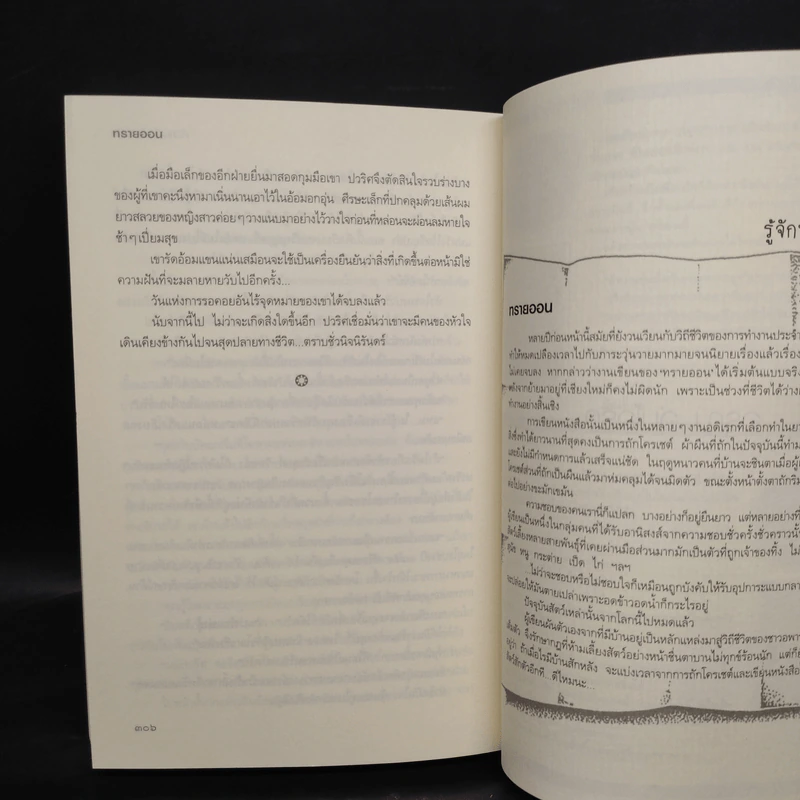 ทรายออน
เมื่อมือเล็กของอีกฝ่ายยื่นมาสอดกุมมือเขา ปวริศจึงตัดสินใจรวบร่างบาง
ของผู้ที่เขาคะนึงหามาเนิ่นนานเอาไว้ในอ้อมอกอุ่น ศีรษะเล็กที่ปกคลุมด้วยเส้นผม
ยาวสลวยของหญิงสาวค่อยๆ วางแนบมาอย่างไว้วางใจก่อนที่หล่อนจะผ่อนลมหายใจ
ช้าๆ เปี่ยมสุข
เขารัดอ้อมแขนแน่นเสมือนจะใช้เป็นเครื่องยืนยันว่าสิ่งที่เกิดขึ้นต่อหน้ามิใช่
ความฝันที่จะมลายหายวับไปอีกครั้ง...
วันแห่งการรอคอยอันไร้จุดหมายของเขาได้จบลงแล้ว
นับจากนี้ไป ไม่ว่าจะเกิดสิ่งใดขึ้นอีก ปวริศเชื่อมั่นว่าเขาจะมีคนของหัวใจ
เดินเคียงข้างกันไปจนสุดปลายทางชีวิต...ตราบชั่วนิจนิรันดร์
๓๐๖
รู้จัก
ทรายออน
หลายปีก่อนหน้านี้สมัยที่ยังวนเวียนกับวิถีชีวิตของการทำงานประจำ
ทำให้หมดเปลืองเวลาไปกับภาระวุ่นวายมากมายจนนิยายเรื่องแล้วเรื่อง
ไม่เคยจบลง หากกล่าวว่างานเขียนของ 'ทรายออน' ได้เริ่มต้นแบบจริง
หลังจากย้ายมาอยู่ที่เชียงใหม่ก็คงไม่ผิดนัก เพราะเป็นช่วงที่ชีวิตได้ว่าง
ทำงานอย่างสิ้นเชิง
การเขียนหนังสือนั้นเป็นหนึ่งในหลายๆ งานอดิเรกที่เลือกทำในยา
สิ่งซึ่งทำได้ยาวนานที่สุดคงเป็นการถักโครเชต์ ผ้าผืนที่ถักในปัจจุบันนี้ทำม
และยังไม่มีกำหนดการแล้วเสร็จแน่ชัด ในฤดูหนาวคนที่บ้านจะชินตาเมื่อผู้
โครเชต์ส่วนที่ถักเป็นผืนแล้วมาห่มคลุมได้จนมิดตัว ขณะตั้งหน้าตั้งตาถักริม
คงไปอย่างขะมักเขม้น
ความชอบของคนเรานี่ก็แปลก บางอย่างก็อยู่ยืนยาว แต่หลายอย่างที่
ผู้เขียนเป็นหนึ่งในกลุ่มคนที่ได้รับอานิสงส์จากความชอบชั่วครั้งชั่วคราวนั้
สัตว์เลี้ยงหลายสายพันธุ์ที่เคยผ่านมือส่วนมากมักเป็นตัวที่ถูกเจ้าของทิ้ง ไม่
สุนัข หนู กระต่าย เป็ด ไก่ ฯลฯ
...ไม่ว่าจะชอบหรือไม่ชอบใจก็เหมือนถูกบังคับให้รับอุปการะแบบกลา
จะปล่อยให้มันตายเปล่าเพราะอดข้าวอดน้ำก็กระไรอยู่
ปัจจุบันสัตว์เหล่านั้นจากโลกนี้ไปหมดแล้ว
ผู้เขียนผันตัวเองจากที่มีบ้านอยู่เป็นหลักแหล่งมาสู่วิถีชีวิตของชาวอพา
เต็มตัว จึงรักษากฎที่ห้ามเลี้ยงสัตว์อย่างหน้าชื่นตาบานไม่ทุกข์ร้อนนัก แต่ก็
อยู่ว่า ถ้าเมื่อไรมีบ้านสักหลัง จะแบ่งเวลาจากการถักโครเชต์และเขียนหนังสือ
สัตว์สักตัวอีกที...ดีไหมนะ...